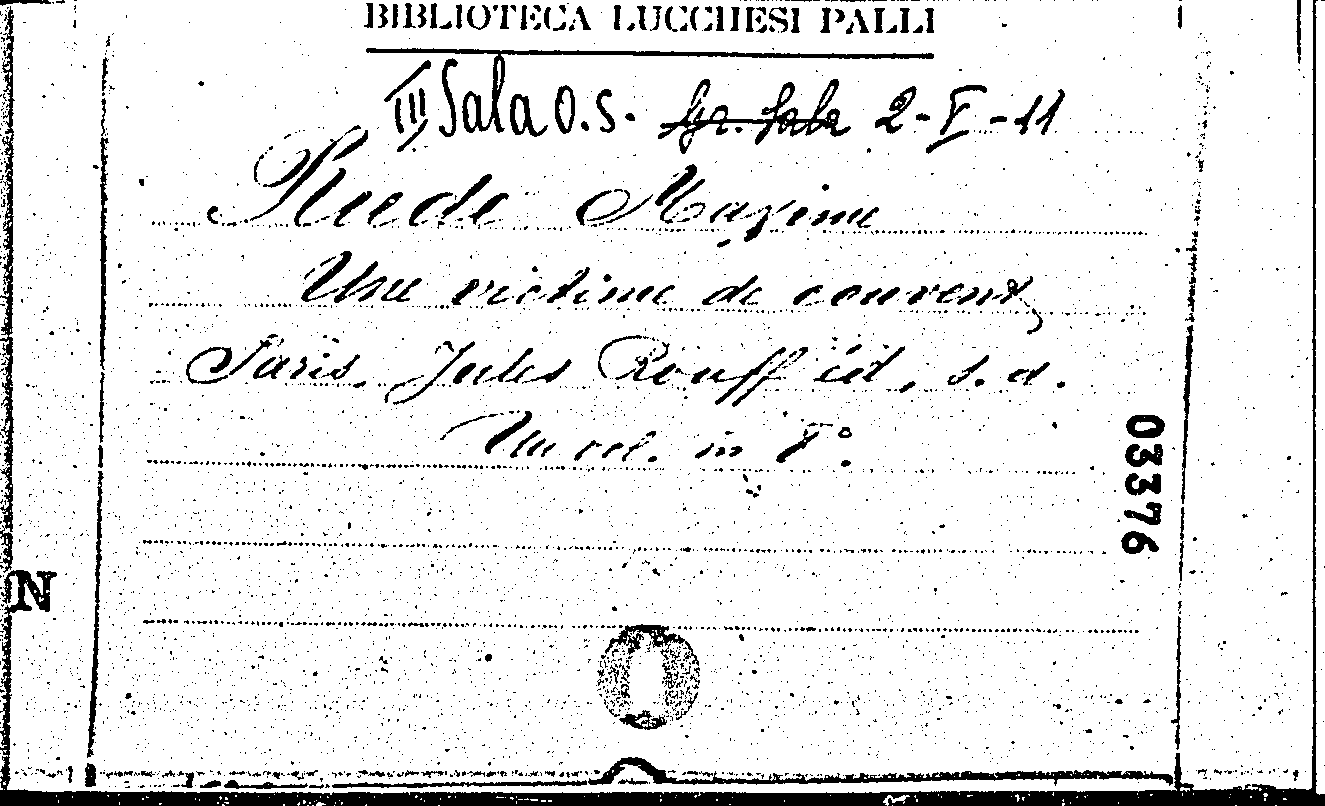 BIBLIOTECA LUCCHESI PALLI
III Sala O.S. Gr. Sala 2-V-11
Rude Maxime
Une victime de couvent,
Paris, Jules Rouff éd., s. d.
Un vol. in 8°.
03376
N